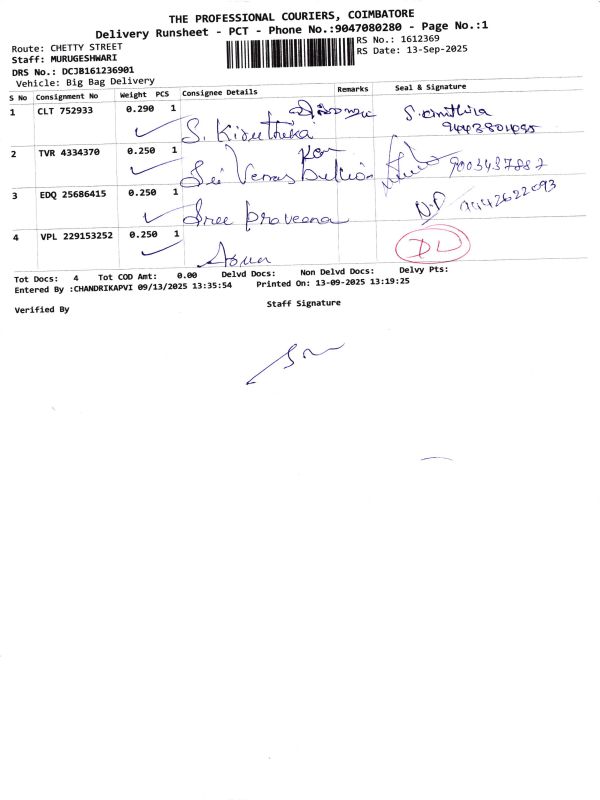 THE PROFESSIONAL COURIERS, COIMBATORE
Delivery Runsheet - PCT - Phone No.:9047080280 - Page No.:1
Route: CHETTY STREET
RS No.: 1612369
Staff: MURUGESHWARI
RS Date: 13-Sep-2025
DRS No.: DCJB161236901
Vehicle: Big Bag Delivery
S No Consignment No Weight PCS Consignee Details Remarks Seal & Signature
1 CLT 752933 0.290 1
S. Kiruthika
2 TVR 4334370 0.250 1
Sri
9003437887
3 EDQ 25686415 0.250 1
Sree Praveena
N.P 9442622093
4 VPL 229153252 0.250 1
Arun
DL
Tot Docs: 4 Tot COD Amt: 0.00 Delvd Docs: Non Delvd Docs: Delvy Pts:
Entered By :CHANDRIKAPVI 09/13/2025 13:35:54 Printed On: 13-09-2025 13:19:25
Verified By
Staff Signature